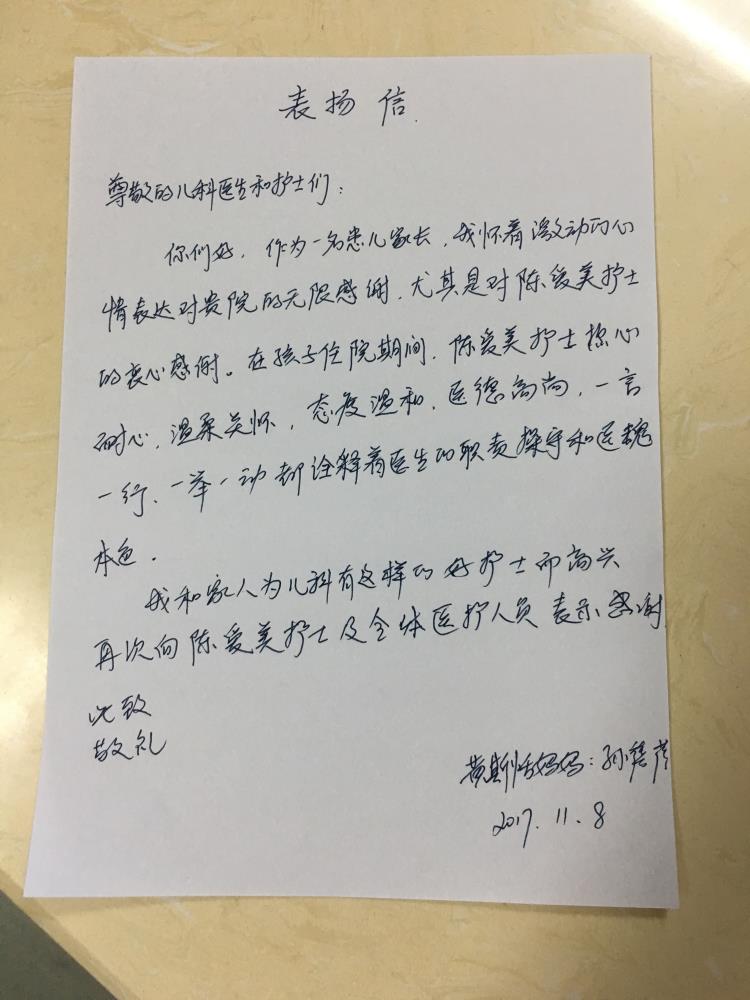 表扬信.
尊敬的儿科医生和护士们:
你们好,作为一名患儿家长,我怀着激动的心
情表达对贵院的无限感谢,尤其是对陈爱美护士
的衷心感谢。在孩子住院期间,陈爱美护士 心
耐心,温柔关怀,态度温和,医德高尚,一言
一行、一举一动都诠释着医生的职责操守和医魂
本色.
我和家人为儿科有这样的好护士而高兴
再次向陈爱美护士及全体医护人员表示感谢
此致
敬礼
黄斯 妈妈:孙
2017.11.8